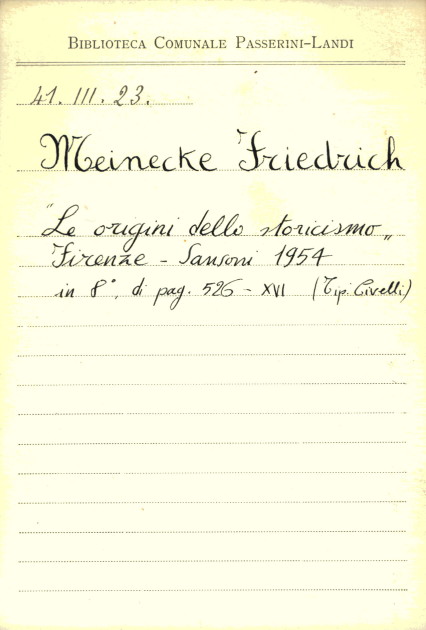 BIBLIOTECA COMUNALE PASSERINI-LANDI
41. III. 23.
Meinecke Friedrich
"Le origini dello storicismo„
Firenze - Sansoni 1954
in 8°, di pag. 526 - XVI (Tip. Civelli)